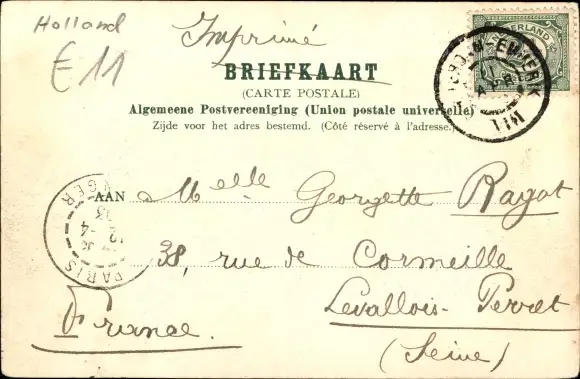 Holland
E 11
Imprimé
BRIEFKAART
(CARTE POSTALE)
Algemeene Postvereeniging (Union postale universelle)
Zijde voor het adres bestemd. (Côté réservé à l'adresse.)
AAN Melle Georgette Ragot
38, rue de Cormeille
Levallois-Perret
(Seine)
France.
PARIS